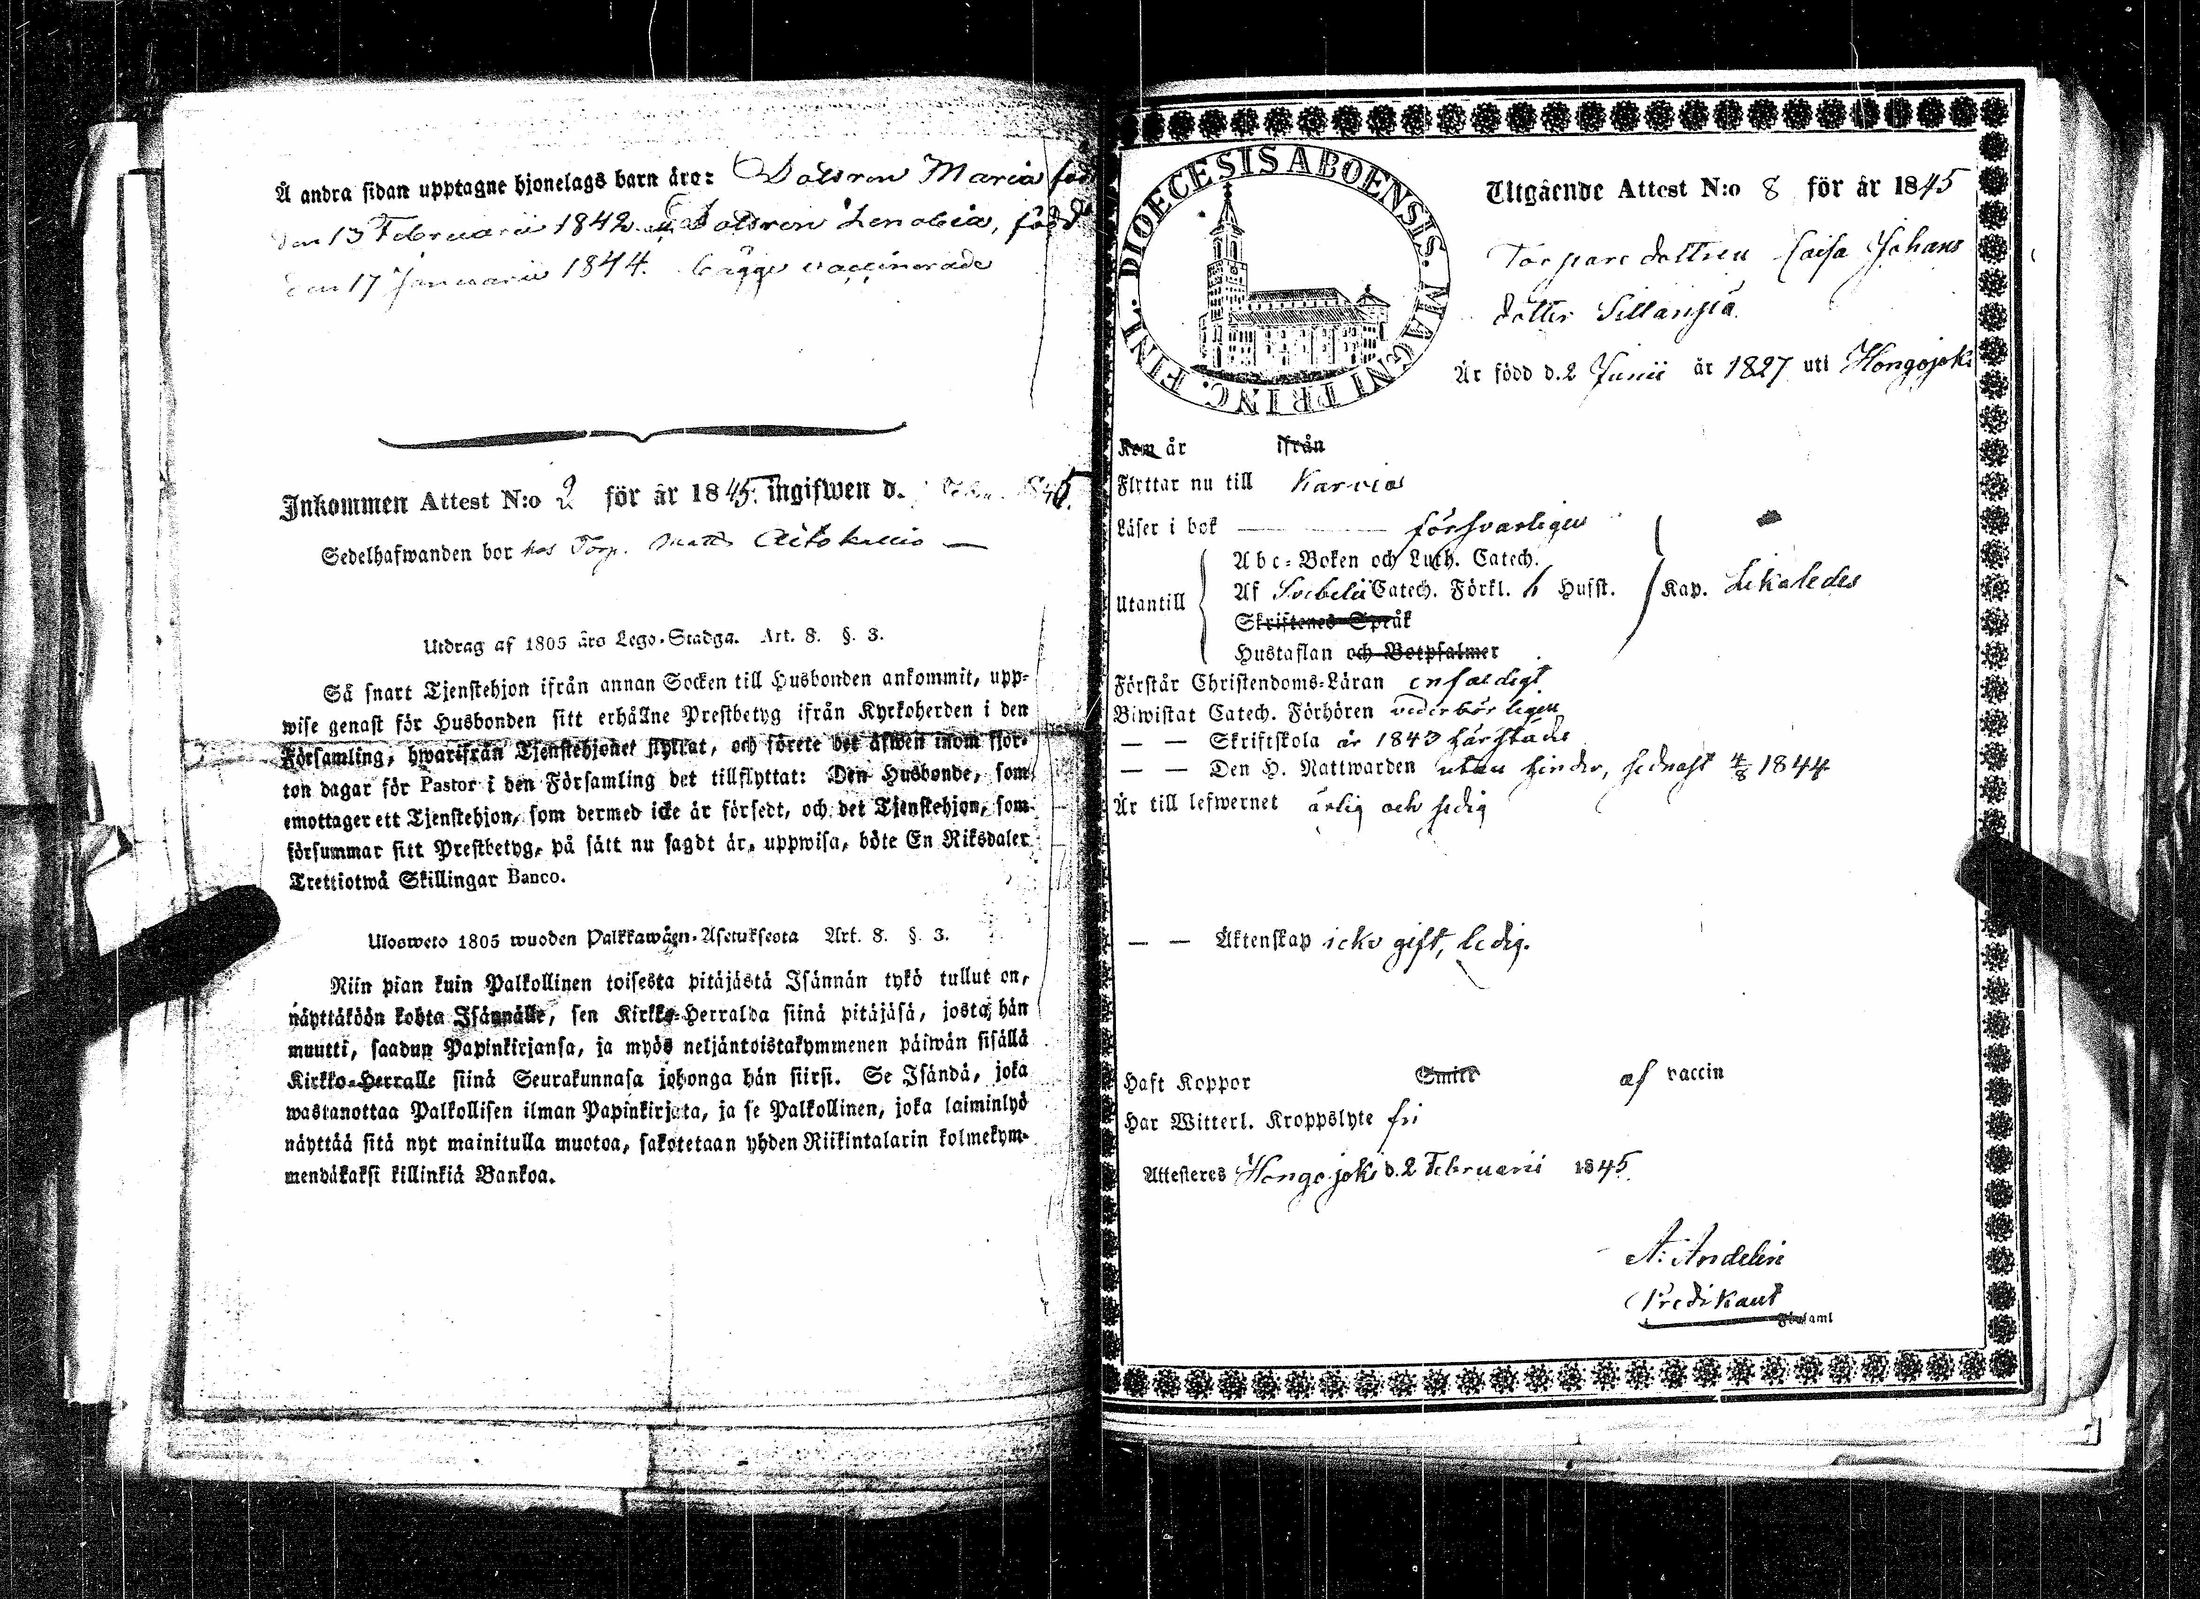 Å andra sidan upptagne hjonelags barn äro: Dotren Maria född
den 13 Februarii 1842 Dotren Zenobia, född
den 17 Januarii 1844. bägge vaccinerade
Inkommen Attest N:o 2 för år 1845. ingifwen d. 1845.
Sedelhafwanden bor hos Torp. Matts Aitokallio
Utdrag af 1805 års Lego-Stadga. Art. 8. §. 3.
Så snart Tjenstehjon ifrån annan Socken till Husbonden ankommit, upp-
wise genast för Husbonden sitt erhållne Prestbetyg ifrån Kyrkoherden i den
Församling, hwarifrån Tjenstehjonet flyttat, och förete det äfwen inom fjor-
ton dagar för Pastor i den Församling det tillflyttat: Den Husbonde, som
emottager ett Tjenstehjon, som dermed icke är försedt, och det Tjenstehjon, som
försummar sitt Prestbetyg, på sätt nu sagdt är, uppwisa, böte En Riksdaler
Trettiotwå Skillingar Banco.
Ulosweto 1805 wuoden Palkkawäen-Asetuksesta Art. 8. §. 3.
Niin pian kuin Palkollinen toisesta pitäjästä Isännän tykö tullut on,
näyttäköön kohta Isännälle, sen Kirkko-Herralda siinä pitäjäsä, josta hän
muutti, saadun Papinkirjansa, ja myös neljäntoistakymmenen päiwän sisällä
Kirkko-Herralle siinä Seurakunnasa johonga hän siirsi. Se Isändä, joka
wastanottaa Palkollisen ilman Papinkirjata, ja se Palkollinen, joka laiminlyö
näyttää sitä nyt mainitulla muotoa, sakotetaan yhden Riikintalarin kolmekym-
mendäkaksi killinkiä Bankoa.
DIOECESIS ABOENSIS. MAGNI PRINC. FINL.
Utgående Attest N:o 8 för år 1845
Torpare dottren Caisa Johans
dotter Sillanpää
Är född d. 2 Junii år 1827 uti Hongojoki
Kom år ifrån
Flyttar nu till Karvia
Läser i bok försvarligen
Abc-Boken och Luth. Catech.
Utantill Af Svebelii Catech. Förkl. h Hufst. Kap. Likaledes
Skriftenes Språk
Hustaflan och Botpsalmer
Förstår Christendoms-Läran enfaldigt
Biwistat Catech. Förhören vederbörligen
— — Skriftskola år 1843 härstädes
— — Den H. Nattwarden utan hinder, sednast 4/8 1844
Är till lefwernet ärlig och sedig
— — Äktenskap icke gift, ledig.
Haft Koppor Smitt af vaccin
Har Witterl. Kroppslyte fri
Attesteres Hongojoki d. 2 Februarii 1845.
A: Andelin
Predikant
Församl